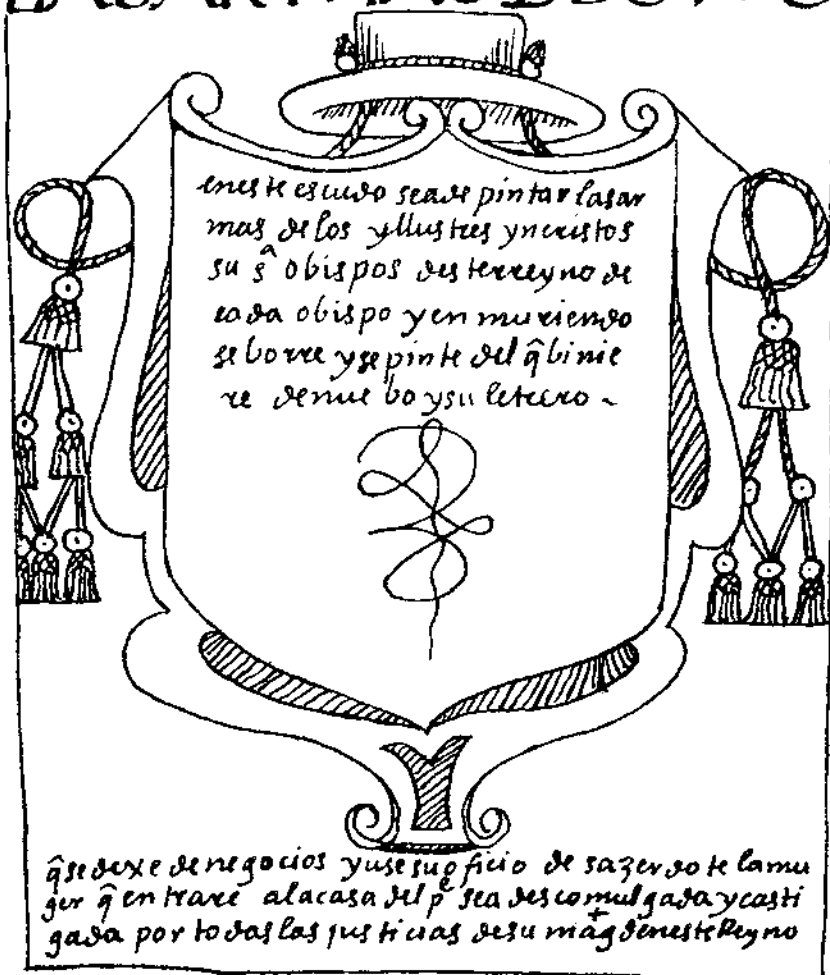 eneste escudo seade pintar lasar
mas delos yllustres yncristos
su sª obispos desterreyno de
cada obispo y en muriendo
se borre y se pinte del q̂ binie
re denuebo y su letrero ~
q̂ se dexe de negocios y use su oficio de sazerdote la mu
ger q̂ entrare a la casa del pᵉ sea descomulgada y casti
gada por todas las justicias de su mag⁺ deneste Reyno